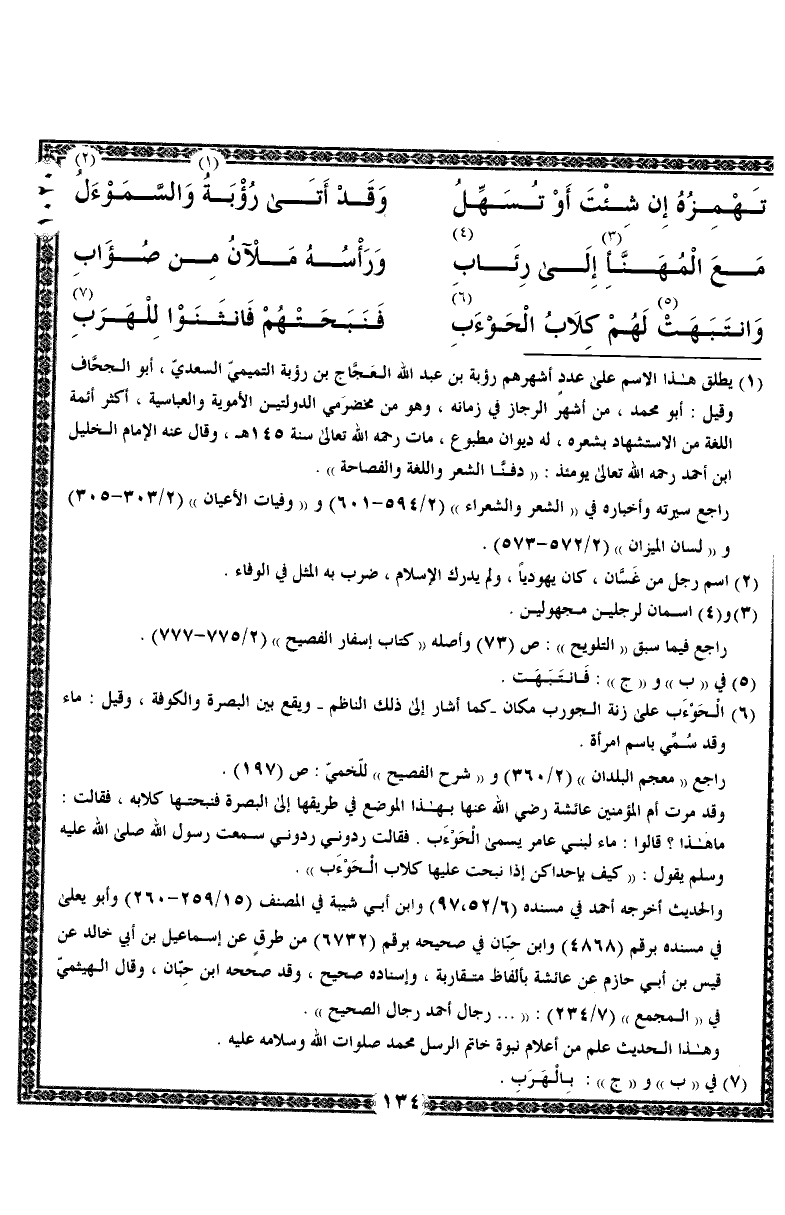 (١) (٢)
تَهْمِزُهُ إِن شِئْتَ أَوْ تُسَهِّلُ وَقَدْ أَتَىٰ رُؤْبَةُ وَالسَّمَوْءَلُ
(٣) (٤)
مَعَ الْمُهَنَّأِ إِلَىٰ رِئَابِ وَرَأْسُهُ مَلْآنُ مِن صُؤَابِ
(٥) (٦) (٧)
وَانتَبَهَتْ لَهُمْ كِلَابُ الْحَوْءَبِ فَنَبَحَتْهُمْ فَانثَنَوْا لِلْهَرَبِ
(١) يطلق هـٰذا الاسم علىٰ عددٍ أشهرهم رؤبة بن عبد الله العَجَّاج بن رؤبة التميميّ السعديّ ، أبو الجحَّاف
وقيل : أبو محمد ، من أشهر الرجاز في زمانه ، وهو من مخضرَمي الدولتين الأموية والعباسية ، أكثر أئمة
اللغة من الاستشهاد بشعره ، له ديوان مطبوع ، مات رحمه الله تعالىٰ سنة ١٤٥هـ ، وقال عنه الإمام الخليل
ابن أحمد رحمه الله تعالىٰ يومئذ : (( دفنَّا الشعر واللغة والفصاحة )) .
راجع سيرته وأخباره في (( الشعر والشعراء )) (٥٩٤/٢-٦٠١) و (( وفيات الأعيان )) (٣٠٣/٢-٣٠٥)
و (( لسان الميزان )) (٥٧٢/٢-٥٧٣) .
(٢) اسم رجل من غَسَّان ، كان يهودياً ، ولم يدرك الإسلام ، ضرب به المثل في الوفاء .
(٣)و(٤) اسمان لرجلين مجهولين .
راجع فيما سبق (( التلويح )) : ص (٧٣) وأصله (( كتاب إسفار الفصيح )) (٧٧٥/٢-٧٧٧) .
(٥) في (( ب )) و (( ج )) : فَانتَبَهَت .
(٦) الْحَوْءَب علىٰ زنة الجورب مكان -كما أشار إلىٰ ذلك الناظم - ويقع بين البصرة والكوفة ، وقيل : ماء
وقد سُمِّي باسم امرأة .
راجع (( معجم البلدان )) (٣٦٠/٢) و (( شرح الفصيح )) للّخميّ : ص (١٩٧) .
وقد مرت أم المؤمنين عائشة رضي الله عنها بهـٰذا الموضع في طريقها إلىٰ البصرة فنبحتها كلابه ، فقالت :
ماهـٰذا ؟ قالوا : ماء لبني عامر يسمىٰ الْحَوْءَب . فقالت ردوني ردوني سمعت رسول الله صلىٰ الله عليه
وسلم يقول : (( كيف بإحداكن إذا نبحت عليها كلاب الْحَوْءَب )) .
والحديث أخرجه أحمد في مسنده (٩٧،٥٢/٦) وابن أبي شيبة في المصنف (٢٥٩/١٥-٢٦٠) وأبو يعلىٰ
في مسنده برقم (٤٨٦٨) وابن حِبَّان في صحيحه برقم (٦٧٣٢) من طرقٍ عن إسماعيل بن أبي خالد عن
قيس بن أبي حازم عن عائشة بألفاظ متقاربة ، وإسناده صحيح ، وقد صححه ابن حِبَّان ، وقال الهيثميّ
في (( المجمع )) (٢٣٤/٧) : (( ... رجال أحمد رجال الصحيح )) .
وهـٰذا الحديث علم من أعلام نبوة خاتم الرسل محمد صلوات الله وسلامه عليه .
(٧) في (( ب )) و (( ج )) : بِالْهَرَبِ .
١٣٤